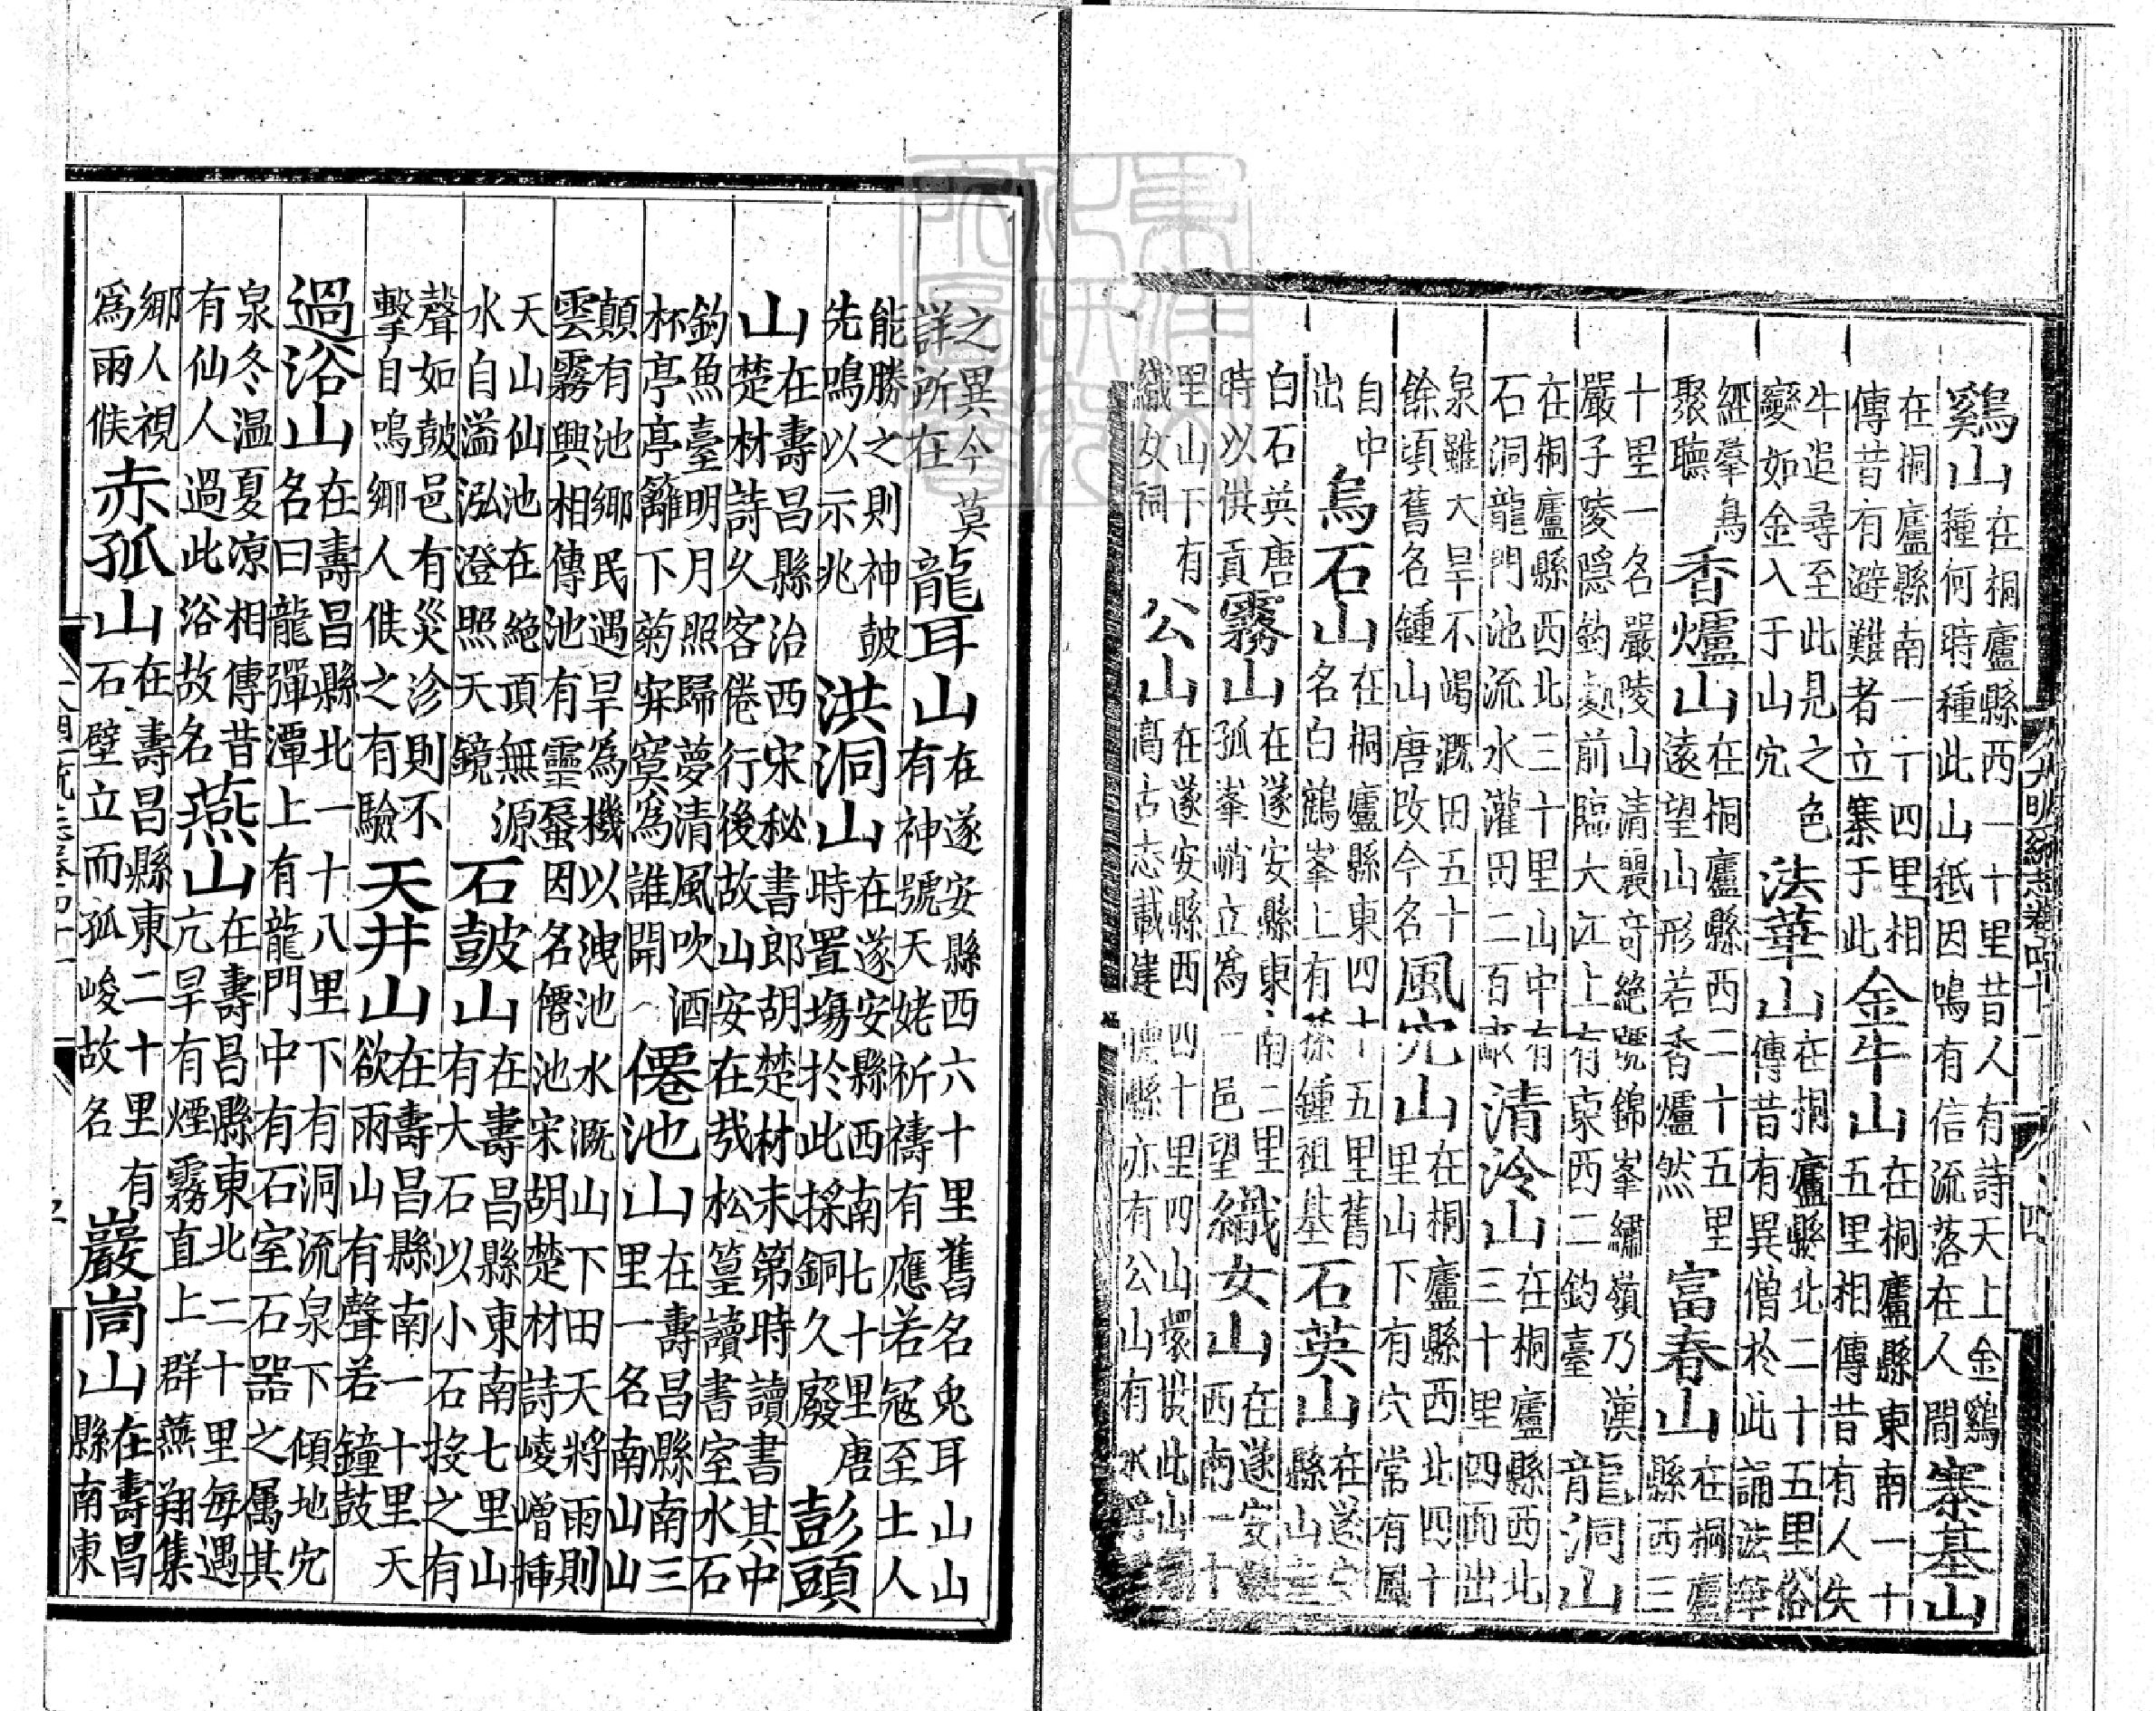 鷄山在桐廬縣西一十里昔人有詩天上金鷄
種何時種此山秪因鳴有信流落在人間寨基山
在桐廬縣南一十四里相
傳昔有避難者立寨于此金牛山在桐廬縣東南一十
五里相傳昔有人失
牛追尋至此見之色
變如金入于山穴法華山在桐廬縣北二十五里俗
傳昔有異僧於此誦法華
經羣鳥
聚聽香爐山在桐廬縣西二十五里
遠望山形若香爐然富春山在桐廬
縣西三
十里一名嚴陵山清麗奇絶號錦峯繡嶺乃漢
嚴子陵隱釣處前臨大江上有東西二釣臺龍洞山
在桐廬縣西北三十里山中有
石洞龍門池流水灌田二百畝清泠山在桐廬縣西北
三十里四面出
泉雖大旱不竭溉田五十
餘頃舊名鍾山唐改今名風穴山在桐廬縣西北四十
里山下有穴常有風
自中
出烏石山在桐廬縣東四十五里舊
名白鶴峯上有孫鍾祖基石英山在遂安
縣山産
白石英唐
時以供貢霧山在遂安縣東南二里
孤峯峭立爲一邑望織女山在遂安縣
西南一十
里山下有
織女祠公山在遂安縣西四十里四山環拱此山
高古志載建德縣亦有公山有水浮
大明一統志卷四十一 四
之異今莫
詳所在龍耳山在遂安縣西六十里舊名兎耳山山
有神號天姥祈禱有應若冦至土人
能勝之則神鼓
先鳴以示兆洪洞山在遂安縣西南七十里唐
時置塲於此採銅久廢彭頭
山在壽昌縣治西宋秘書郎胡楚材未第時讀書其中
楚材詩久客倦行後故山安在㢤松篁讀書室水石
釣魚臺明月照歸夢清風吹酒
杯亭亭籬下菊寂寞為誰開僊池山在壽昌縣南三
里一名南山山
顛有池鄉民遇旱為機以洩池水溉山下田天將雨則
雲霧興相傳池有靈蜃因名僊池宋胡楚材詩崚嶒挿
天山仙池在絶頂無源
水自溢泓澄照天鏡石鼓山在壽昌縣東南七里山
有大石以小石投之有
聲如鼓邑有災沴則不
擊自鳴鄉人候之有驗天井山在壽昌縣南一十里天
欲雨山有聲若鐘鼓
過浴山在壽昌縣北一十八里下有洞流泉下傾地穴
名曰龍彈潭上有龍門中有石室石器之属其
泉冬温夏凉相傳昔
有仙人過此浴故名燕山在壽昌縣東北二十里每遇
亢旱有煙霧直上群燕翔集
鄉人視
爲雨候赤孤山在壽昌縣東二十里有
石壁立而孤峻故名巖峝山在壽昌
縣南東